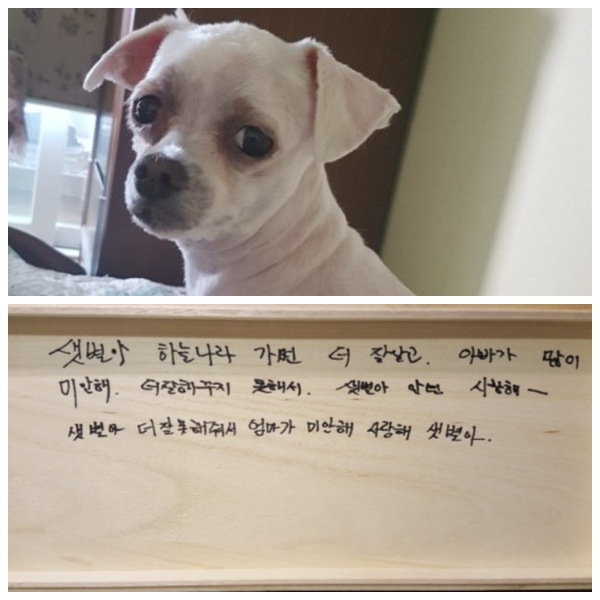 샛별아 하늘나라 가면 더 잘살고. 아빠가 많이
미안해. 더잘해주지 못해서. 샛별아 안녕 사랑해 —
샛별아 더잘못해줘서 엄마가 미안해 사랑해 샛별아.